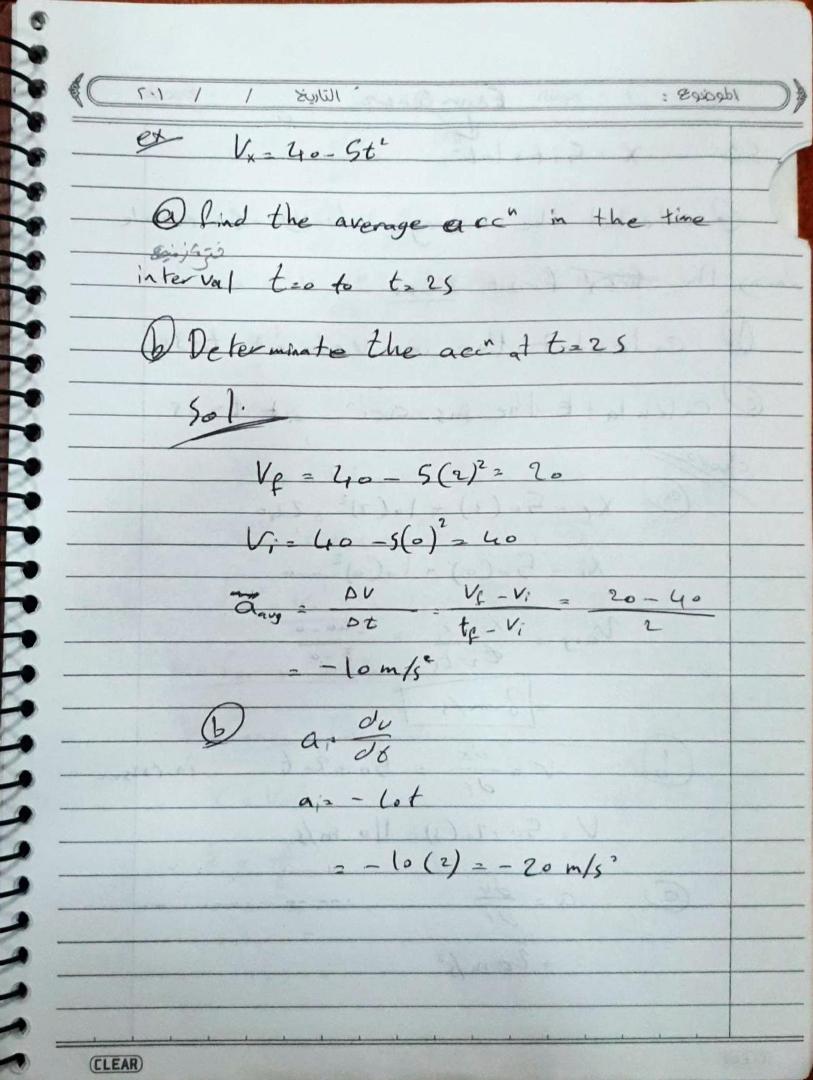 الموضوع : التاريخ / / ٢٠١
ex Vx = 40 - 5t²
ⓐ find the average accⁿ in the time
interval t=0 to t=2s
ⓑ Determinate the accⁿ at t=2s
Sol.
Vf = 40 - 5(2)² = 20
Vi = 40 - 5(0)² = 40
a avg = ΔV/Δt = (Vf - Vi)/(tf - Vi) = (20 - 40)/2
= -10 m/s²
ⓑ ai = dv/dt
ai = -10t
= -10(2) = -20 m/s²
CLEAR